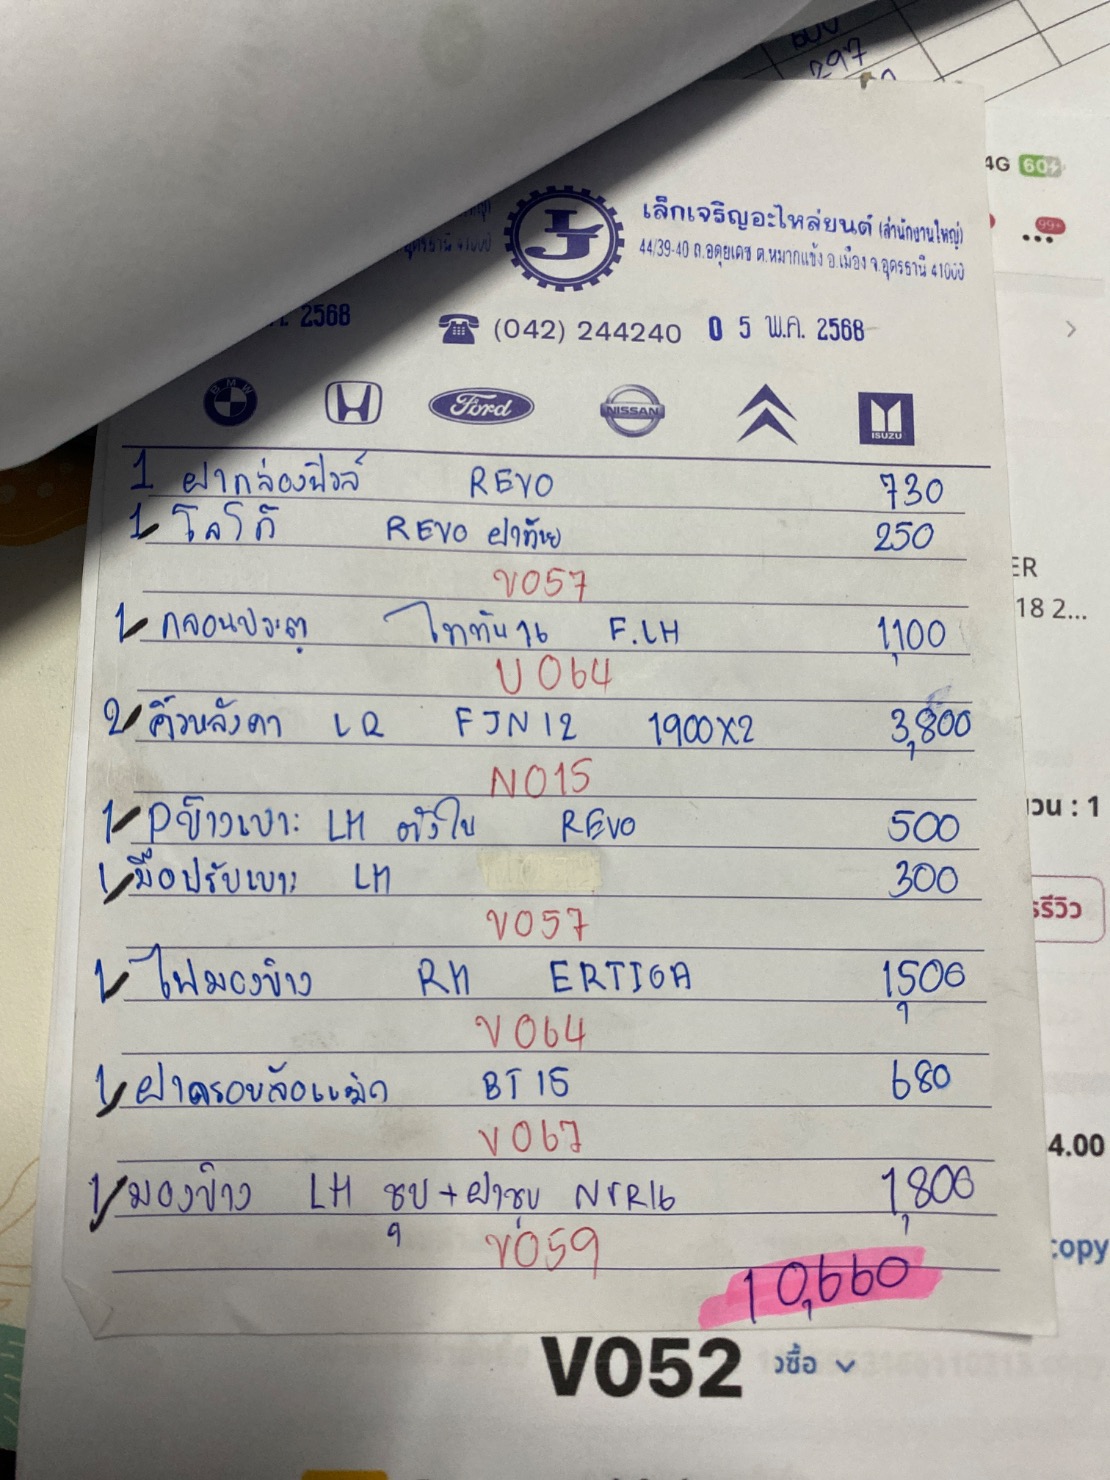 600
297
4G 60
99+
เล็กเจริญอะไหล่ยนต์ (สำนักงานใหญ่)
44/39-40 ถ.อดุยเดช ต.หมากแข้ง อ.เมือง จ.อุดรธานี 41000
.อุดรธานี 41000
2568
(042) 244240 0 5 พ.ค. 2568
BMW Ford NISSAN ISUZU
1 ฝากล่องฟิวส์ REVO 730
1 โลโก้ REVO ฝาท้าย 250
V057
1 กลอนประตู ไททัน 16 F.LH 1,100
V064
2 คิ้วหลังคา LR FJN12 1900X2 3,800
N015
1 Pข้างเบาะ LH ตัวใน REVO 500
1 มือปรับเบาะ LH 300
V057
1 ไฟมองข้าง RH ERTIGA 1,500
V064
1 ฝาครอบล้อแม็ก BT15 680
V067
1 มองข้าง LH ชุบ+ฝาชุบ NVR16 1,800
V059
10,660
ER
18 2...
วน : 1
รรีวิว
4.00
copy
V052
วซื้อ